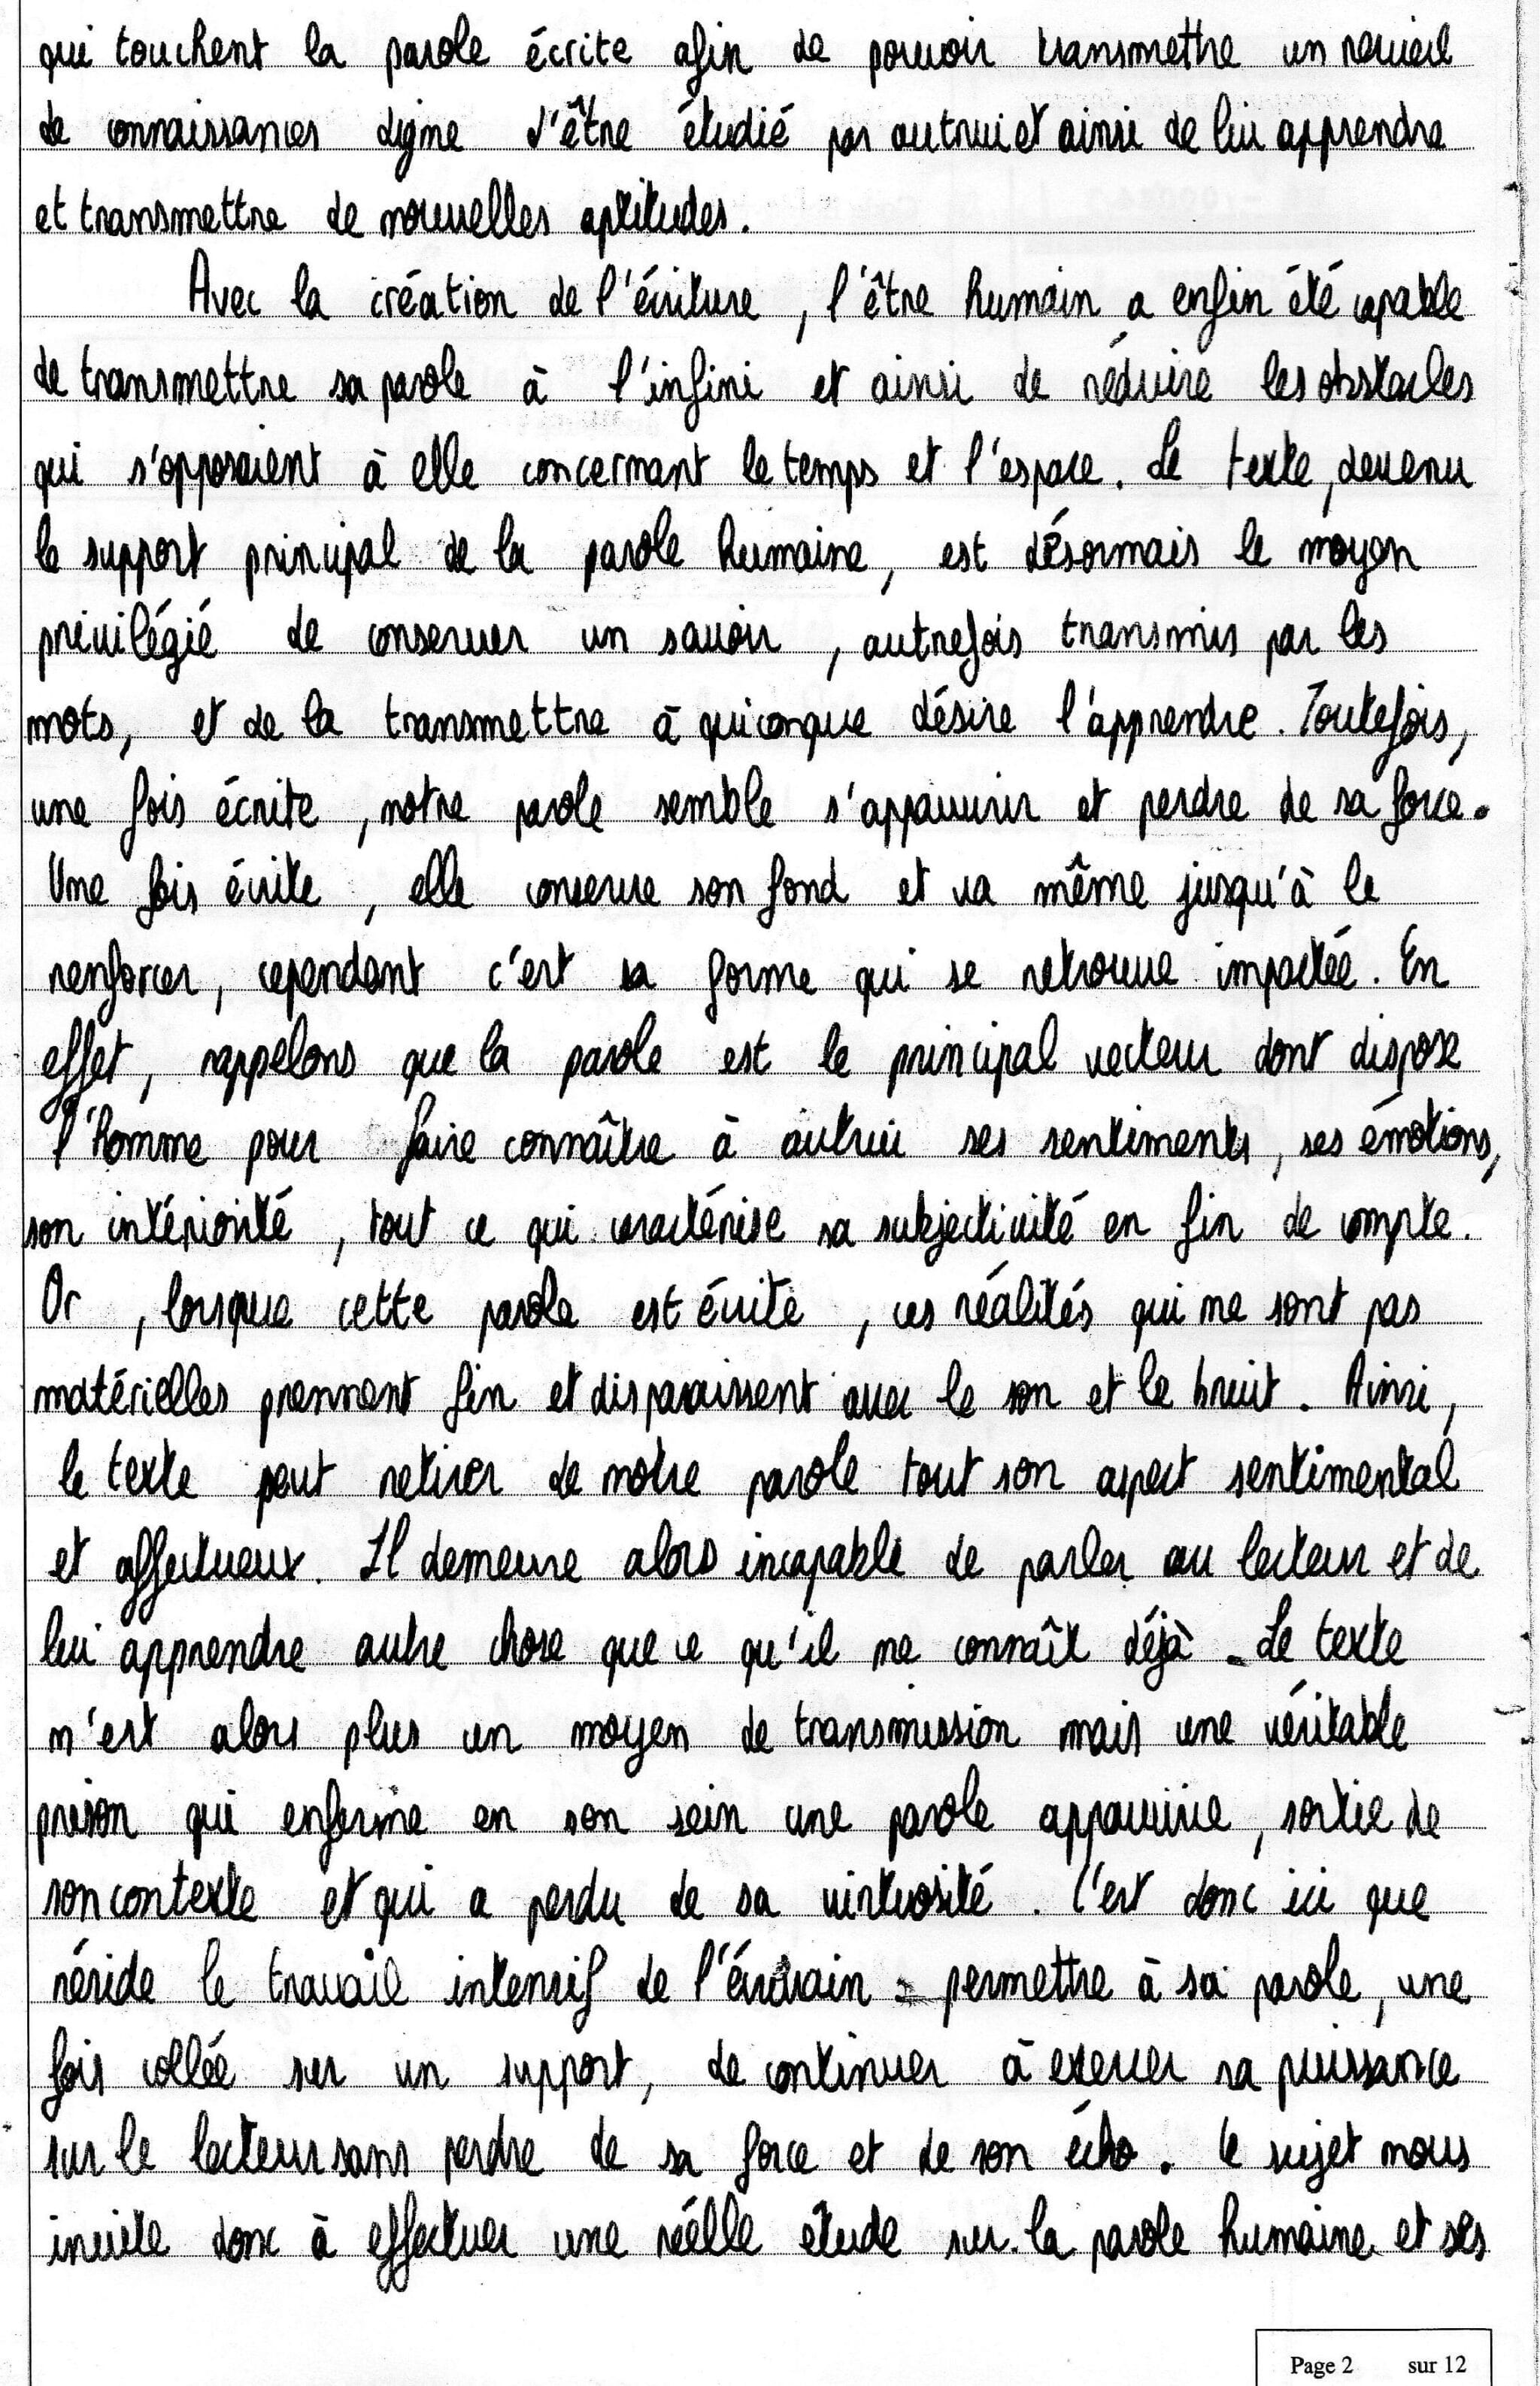 qui touchent la parole écrite afin de pouvoir transmettre un recueil
de connaissances digne d'être étudié par autrui et ainsi de lui apprendre
et transmettre de nouvelles aptitudes.
Avec la création de l'écriture, l'être humain a enfin été capable
de transmettre sa parole à l'infini et ainsi de réduire les obstacles
qui s'opposaient à elle concernant le temps et l'espace. Le texte, devenu
le support principal de la parole humaine, est désormais le moyen
privilégié de conserver un savoir, autrefois transmis par les
mots, et de la transmettre à quiconque désire l'apprendre. Toutefois,
une fois écrite, notre parole semble s'appauvrir et perdre de sa force.
Une fois écrite, elle conserve son fond et va même jusqu'à le
renforcer, cependant c'est sa forme qui se retrouve impactée. En
effet, rappelons que la parole est le principal vecteur dont dispose
l'homme pour faire connaître à autrui ses sentiments, ses émotions,
son intériorité, tout ce qui caractérise sa subjectivité en fin de compte.
Or, lorsque cette parole est écrite, ces réalités qui ne sont pas
matérielles prennent fin et disparaissent avec le son et le bruit. Ainsi,
le texte peut retirer de notre parole tout son aspect sentimental
et affectueux. Il demeure alors incapable de parler au lecteur et de
lui apprendre autre chose que ce qu'il ne connaît déjà. Le texte
n'est alors plus un moyen de transmission mais une véritable
prison qui enferme en son sein une parole appauvrie, sortie de
son contexte et qui a perdu de sa virtuosité. C'est donc ici que
réside le travail intensif de l'écrivain : permettre à sa parole, une
fois collée sur un support, de continuer à exercer sa puissance
sur le lecteur sans perdre de sa force et de son écho. Le sujet nous
invite donc à effectuer une réelle étude sur la parole humaine et ses
Page 2 sur 12